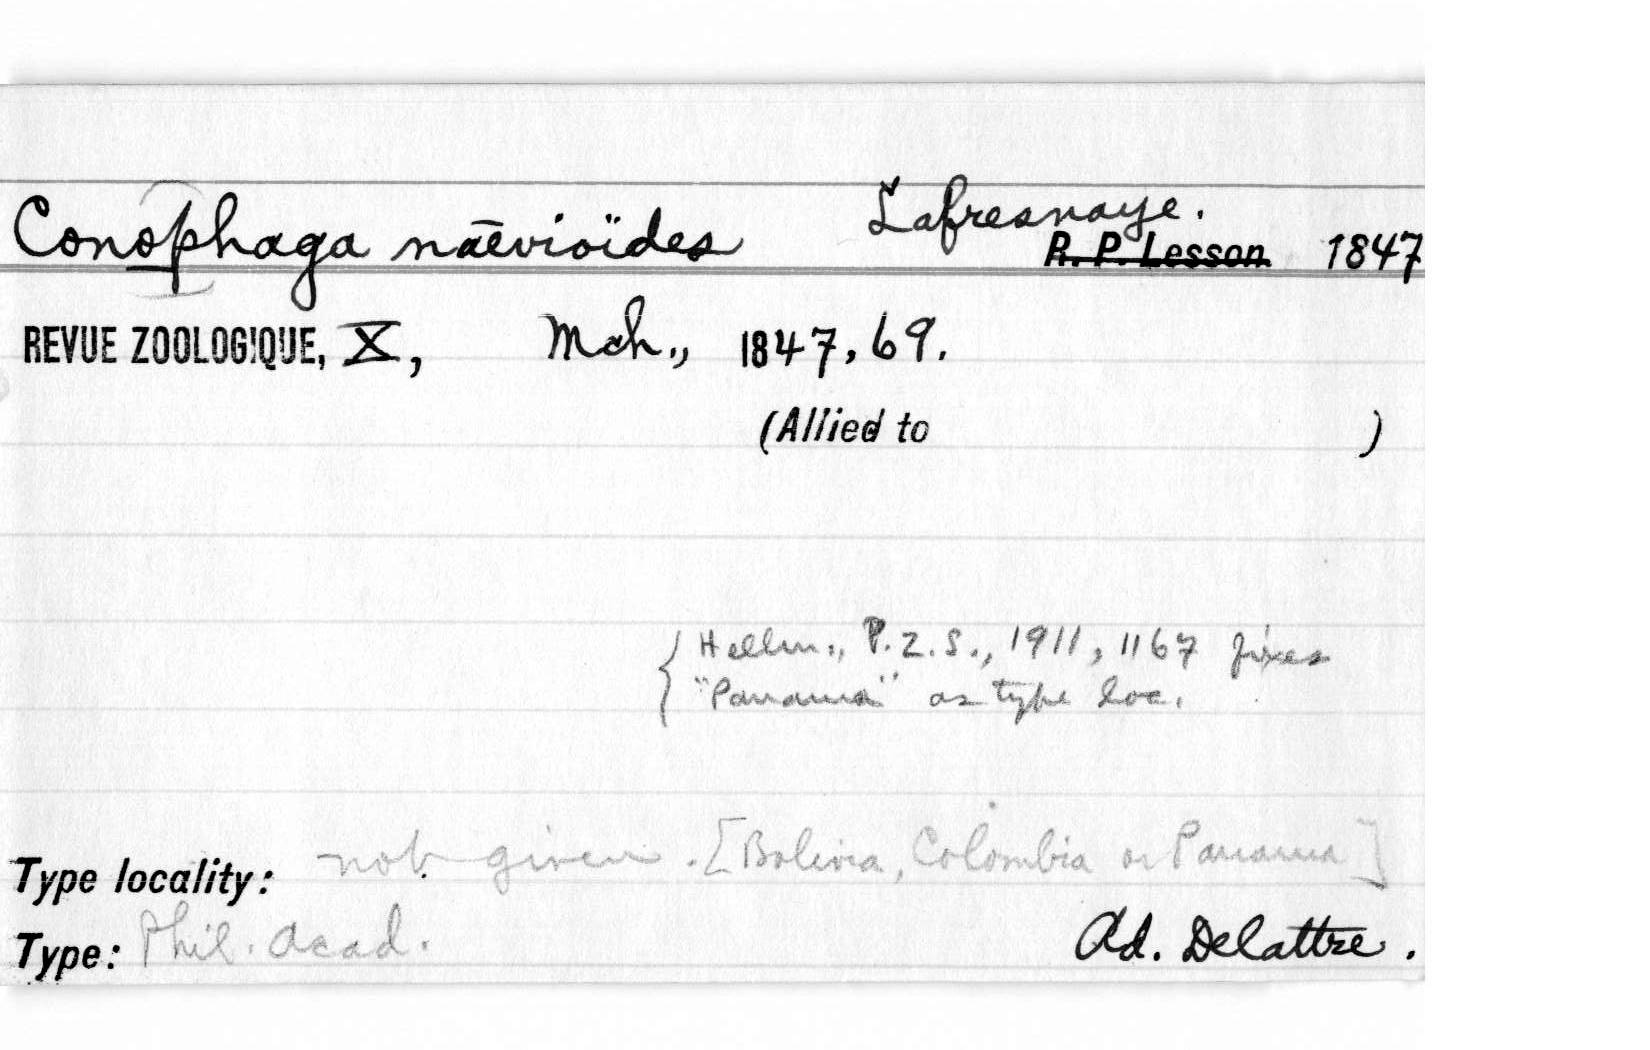 Conophaga nāevioïdes Lafresnaye.
R. P. Lesson 1847
REVUE ZOOLOGIQUE, X, Mch., 1847, 69.
(Allied to )
{ Hellm., P.Z.S., 1911, 1167 fixes
"Panama" as type loc.
Type locality: not given. [Bolivia, Colombia or Panama]
Type: Phil. Acad. Ad. Delattre.